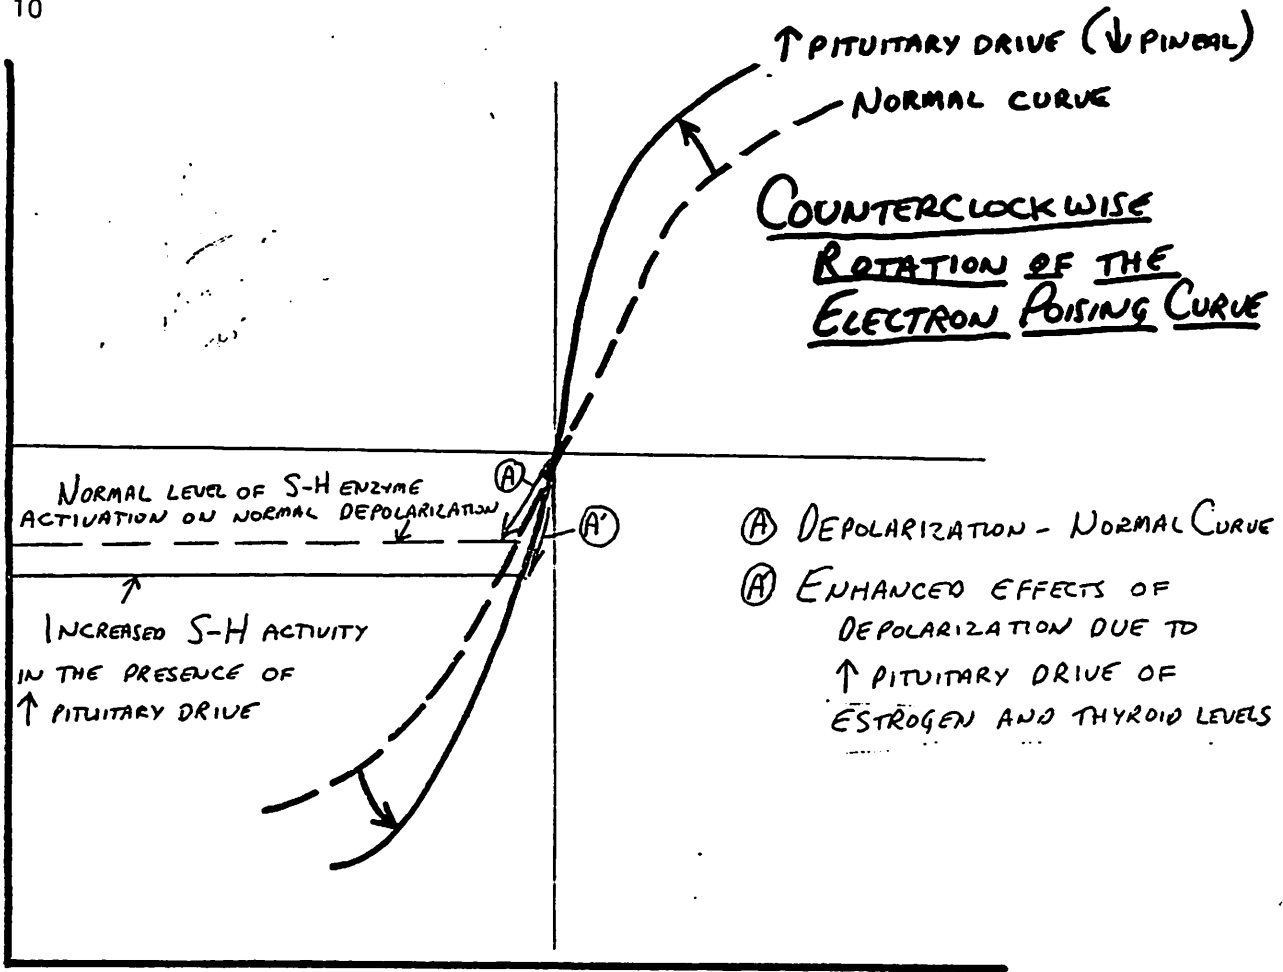 10
↑ PITUITARY DRIVE (↓ PINEAL)
NORMAL CURVE
COUNTERCLOCKWISE
ROTATION OF THE
ELECTRON POISING CURVE
NORMAL LEVEL OF S-H ENZYME
ACTIVATION ON NORMAL DEPOLARIZATION
A
A'
INCREASED S-H ACTIVITY
IN THE PRESENCE OF
↑ PITUITARY DRIVE
A DEPOLARIZATION - NORMAL CURVE
A' ENHANCED EFFECTS OF
DEPOLARIZATION DUE TO
↑ PITUITARY DRIVE OF
ESTROGEN AND THYROID LEVELS